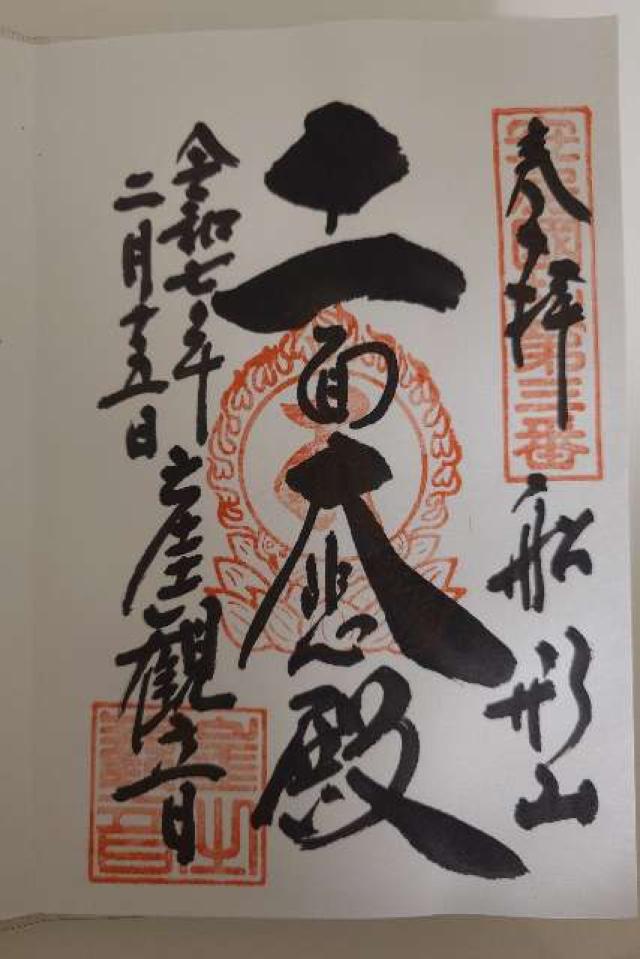 奉拝
船形山
十一面大悲殿
令和七年
二月十五日
崖観音
第三番